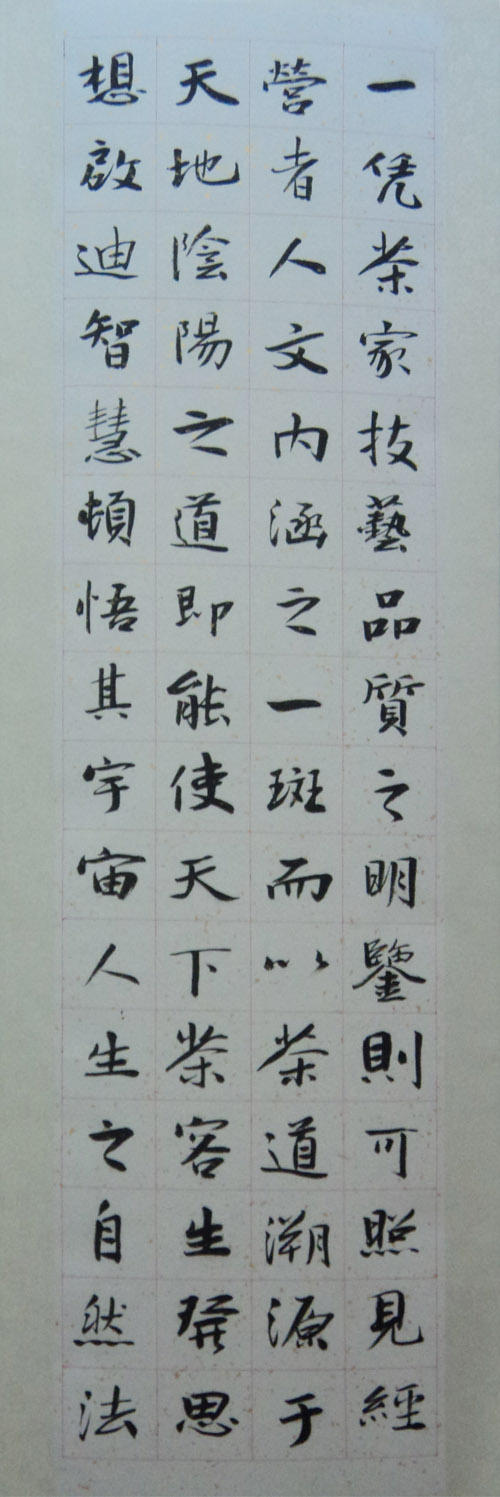 一凭茶家技藝品質之明鑒則可照見經
營者人文内涵之一斑而以茶道溯源于
天地陰陽之道即能使天下茶客生發思
想啟迪智慧頓悟其宇宙人生之自然法